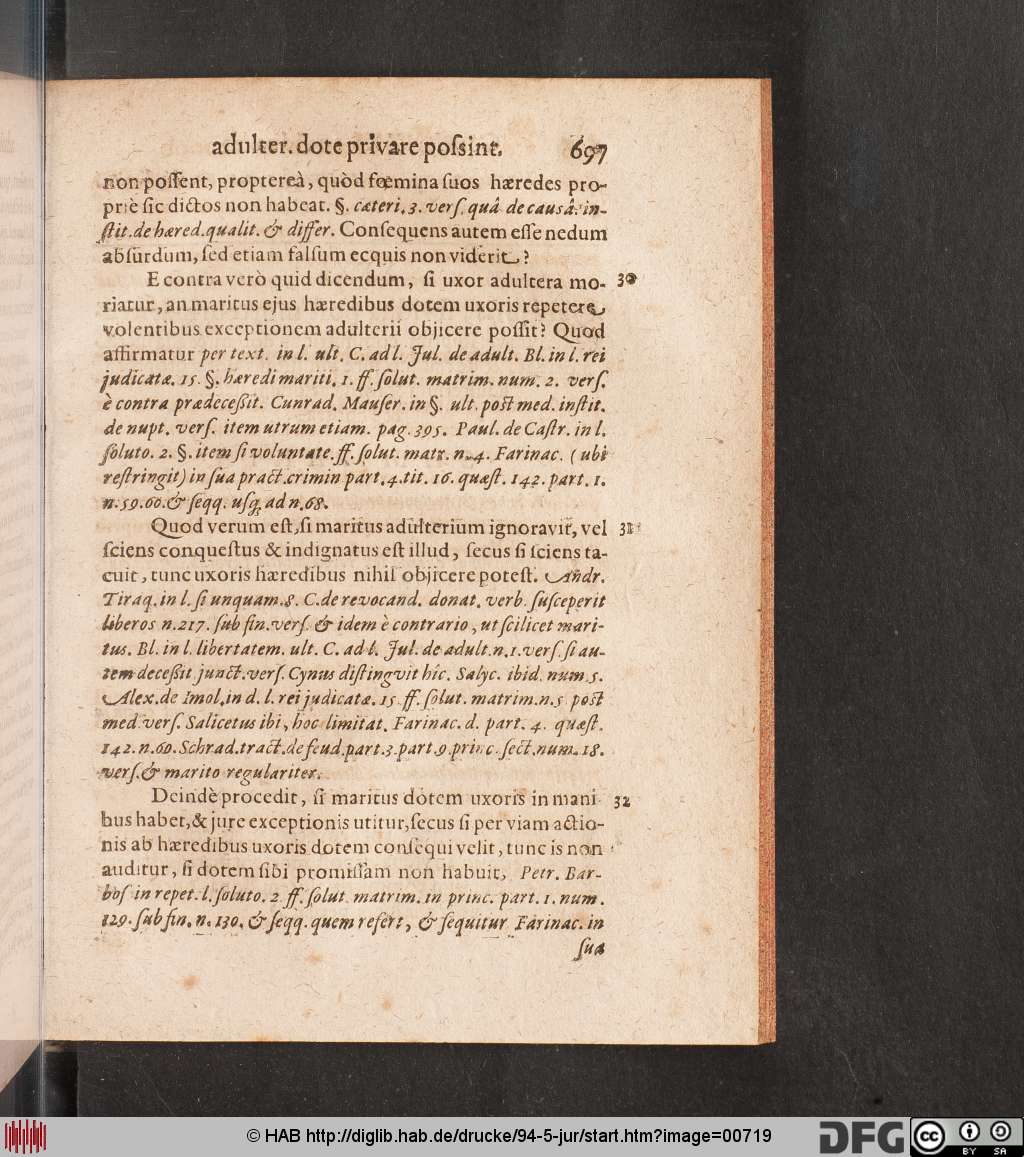 adulter. dote privare poſsint. 697
non poſſent, proptereà, quòd fœmina ſuos hæredes pro-
priè ſic dictos non habeat. §. cæteri. 3. verſ. quâ de causâ. in-
ſtit. de hæred. qualit. & differ. Conſequens autem eſſe nedum
abſurdum, ſed etiam falſum ecquis non viderit?
E contra verò quid dicendum, ſi uxor adultera mo- 30
riatur, an maritus ejus hæredibus dotem uxoris repetere
volentibus exceptionem adulterii objicere poſſit? Quod
affirmatur per text. in l. ult. C. ad l. Jul. de adult. Bl. in l. rei
judicatæ. 15. §. hæredi mariti. 1. ff. ſolut. matrim. num. 2. verſ.
è contra prædeceßit. Cunrad. Mauſer. in §. ult. poſt med. inſtit.
de nupt. verſ. item utrum etiam. pag. 395. Paul. de Caſtr. in l.
ſoluto. 2. §. item ſi voluntate. ff. ſolut. matr. n. 4. Farinac. (ubi
reſtringit) in ſua pract. crimin part. 4. tit. 16. quæſt. 142. part. 1.
n. 59. 60. & ſeqq. uſq; ad n. 68.
Quod verum eſt, ſi maritus adulterium ignoravit, vel 31
ſciens conqueſtus & indignatus eſt illud, ſecus ſi ſciens ta-
cuit, tunc uxoris hæredibus nihil objicere poteſt. Andr.
Tiraq. in l. ſi unquam. 8. C. de revocand. donat. verb. ſuſceperit
liberos n. 217. ſub fin. verſ. & idem è contrario, ut ſcilicet mari-
tus. Bl. in l. libertatem. ult. C. ad l. Jul. de adult. n. 1. verſ. ſi au-
tem deceßit junct. verſ. Cynus diſtingvit hîc. Salyc. ibid. num. 5.
Alex. de Imol. in d. l. rei judicatæ. 15 ff. ſolut. matrim. n. 5 poſt
med verſ. Salicetus ibi, hoc limitat. Farinac. d. part. 4. quæſt.
142. n. 60. Schrad. tract. de feud. part. 3. part. 9 princ. ſect. num. 18.
verſ. & marito regulariter.
Deindè procedit, ſi maritus dotem uxoris in mani 32
bus habet, & jure exceptionis utitur, ſecus ſi per viam actio-
nis ab hæredibus uxoris dotem conſequi velit, tunc is non
auditur, ſi dotem ſibi promiſſam non habuit, Petr. Bar-
boſ in repet. l. ſoluto. 2 ff. ſolut matrim. in princ. part. 1. num.
129. ſub fin. n. 130. & ſeqq. quem refert, & ſequitur Farinac. in
ſua
© HAB http://diglib.hab.de/drucke/94-5-jur/start.htm?image=00719
DFG cc BY SA